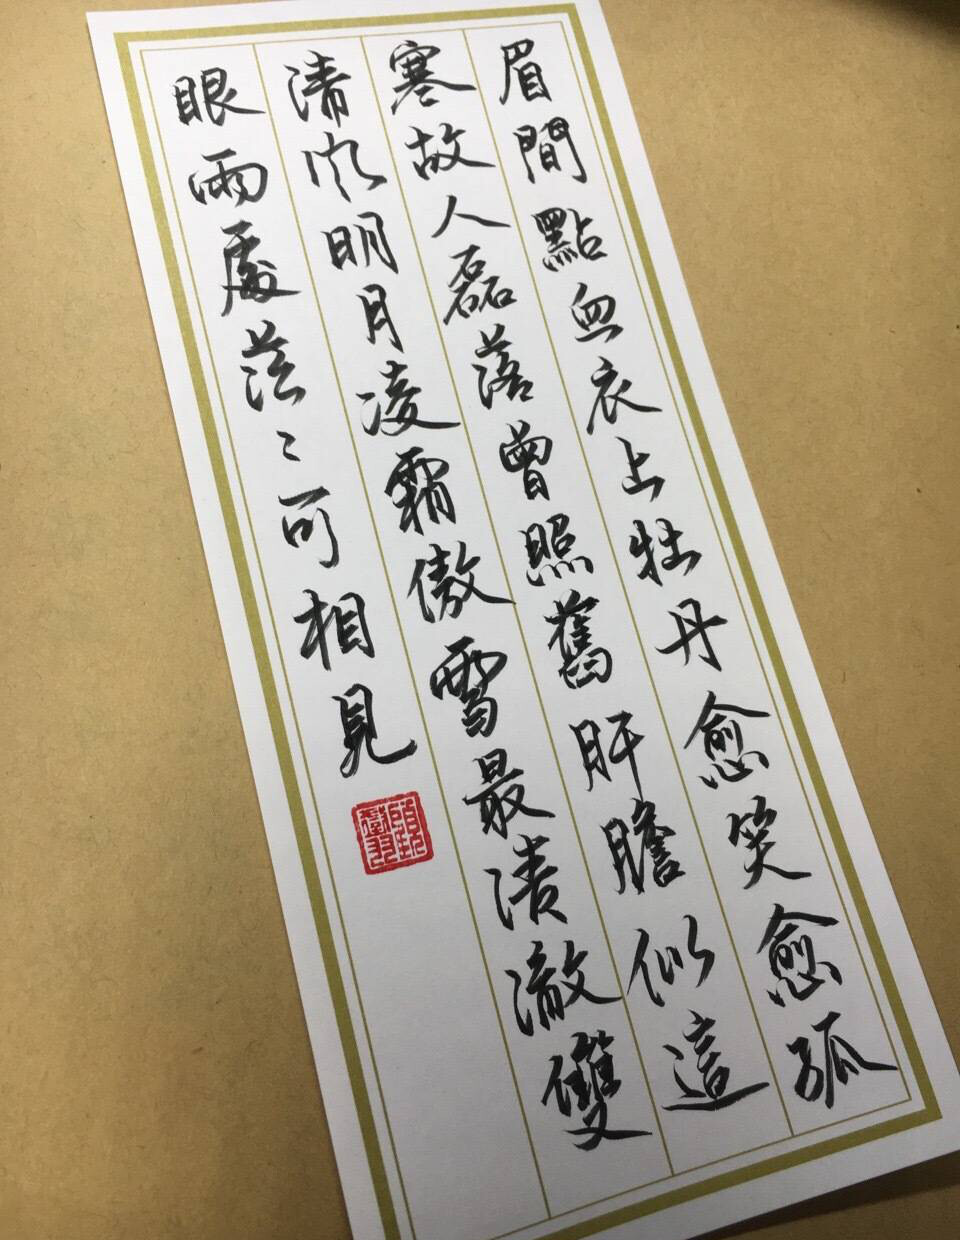 眉間點血衣上牡丹愈笑愈孤
寒故人磊落曾照舊肝膽似這
清風明月凌霜傲雪最清澈雙
眼兩處茫〻可相見